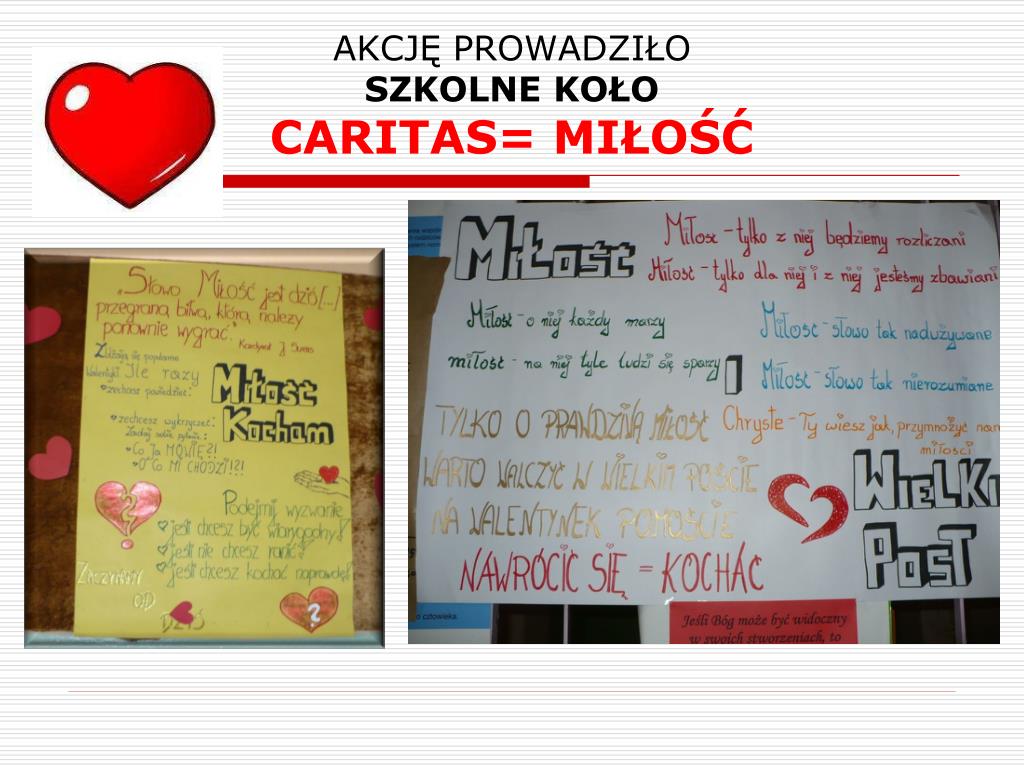 AKCJĘ PROWADZIŁO
SZKOLNE KOŁO
CARITAS= MIŁOŚĆ
"Słowo Miłość jest dziś [...]
przegraną bitwą, którą należy
ponownie wygrać."
Kardynał J.
Zbliżają się popularne
Walentynki Ile razy
zechcesz powiedzieć:
Miłość
Kocham
zechcesz wykrzyczeć:
Zadaj sobie pytanie:
Co Ja MÓWIĘ?!
O Co MI CHODZI?!
?
Podejmij wyzwanie
jeśli chcesz być wiarygodny!
jeśli nie chcesz ranić!
jeśli chcesz kochać naprawdę!
Zaczynamy
OD
DZIŚ
?
Miłość
Miłość - tylko z niej będziemy rozliczani
Miłość - tylko dla niej i z niej jesteśmy zbawiani
Miłość - o niej każdy marzy
Miłość - słowo tak nadużywane
miłość - na niej tyle ludzi się sparzy
Miłość - słowo tak nierozumiane
TYLKO O PRAWDZIWĄ MIŁOŚĆ
Chryste - Ty wiesz jak, przymnożyć nam
miłości
WARTO WALCZYĆ W WIELKIM POŚCIE
WIELKI
NA WALENTYNEK POMOŚCIE
POST
NAWRÓCIĆ SIĘ = KOCHAĆ
człowieka.
Jeśli Bóg może być widoczny
w swoich stworzeniach, to